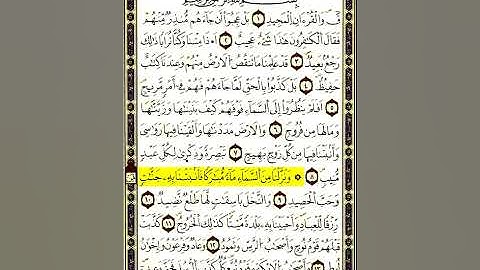 قٓ وَٱلْقُرْءَانِ ٱلْمَجِيدِ ١ بَلْ عَجِبُوٓا۟ أَن جَآءَهُم مُّنذِرٌ مِّنْهُمْ
فَقَالَ ٱلْكَٰفِرُونَ هَٰذَا شَىْءٌ عَجِيبٌ ٢ أَءِذَا مِتْنَا وَكُنَّا تُرَابًا ذَٰلِكَ
رَجْعٌۢ بَعِيدٌ ٣ قَدْ عَلِمْنَا مَا تَنقُصُ ٱلْأَرْضُ مِنْهُمْ وَعِندَنَا كِتَٰبٌ
حَفِيظٌۢ ٤ بَلْ كَذَّبُوا۟ بِٱلْحَقِّ لَمَّا جَآءَهُمْ فَهُمْ فِىٓ أَمْرٍ مَّرِيجٍ
٥ أَفَلَمْ يَنظُرُوٓا۟ إِلَى ٱلسَّمَآءِ فَوْقَهُمْ كَيْفَ بَنَيْنَٰهَا وَزَيَّنَّٰهَا
وَمَا لَهَا مِن فُرُوجٍ ٦ وَٱلْأَرْضَ مَدَدْنَٰهَا وَأَلْقَيْنَا فِيهَا رَوَٰسِىَ
وَأَنۢبَتْنَا فِيهَا مِن كُلِّ زَوْجٍۭ بَهِيجٍ ٧ تَبْصِرَةً وَذِكْرَىٰ لِكُلِّ عَبْدٍ
مُّنِيبٍ ٨ ۞ وَنَزَّلْنَا مِنَ ٱلسَّمَآءِ مَآءً مُّبَٰرَكًا فَأَنۢبَتْنَا بِهِۦ جَنَّٰتٍ
وَحَبَّ ٱلْحَصِيدِ ٩ وَٱلنَّخْلَ بَاسِقَٰتٍ لَّهَا طَلْعٌ نَّضِيدٌ ١٠
رِّزْقًا لِّلْعِبَادِ وَأَحْيَيْنَا بِهِۦ بَلْدَةً مَّيْتًا كَذَٰلِكَ ٱلْخُرُوجُ ١١ كَذَّبَتْ
قَبْلَهُمْ قَوْمُ نُوحٍ وَأَصْحَٰبُ ٱلرَّسِّ وَثَمُودُ ١٢ وَعَادٌ وَفِرْعَوْنُ وَإِخْوَٰنُ
لُوطٍ ١٣ وَأَصْحَٰبُ ٱلْأَيْكَةِ وَقَوْمُ تُبَّعٍ كُلٌّ كَذَّبَ ٱلرُّسُلَ فَحَقَّ وَعِيدِ